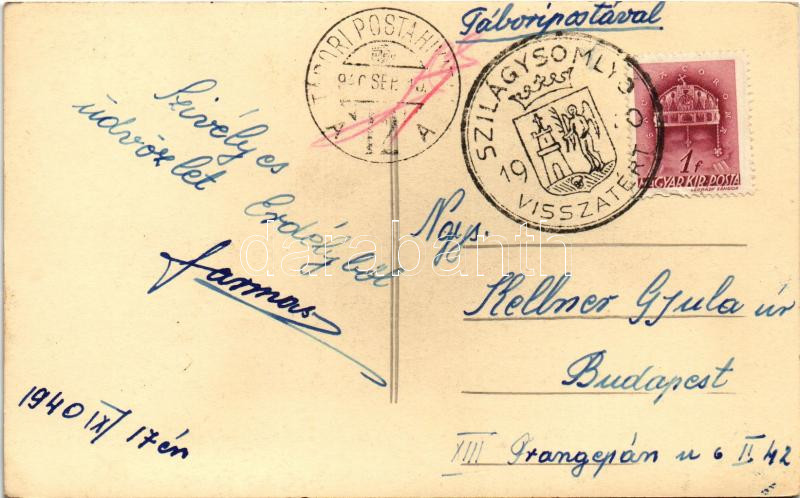 Táboripostával
TÁBORI POSTAHIVATAL
940 SEP.
A 12 A
SZILÁGYSOMLYÓ
1940
VISSZATÉRT
1f
MAGYAR KIR. POSTA
Szivélyes
üdvözlet Erdélyből
Farmas
1940 IX/17én
darabanth
Ngys.
Kellner Gyula úr
Budapest
XIII Frangepán u 6 II. 42